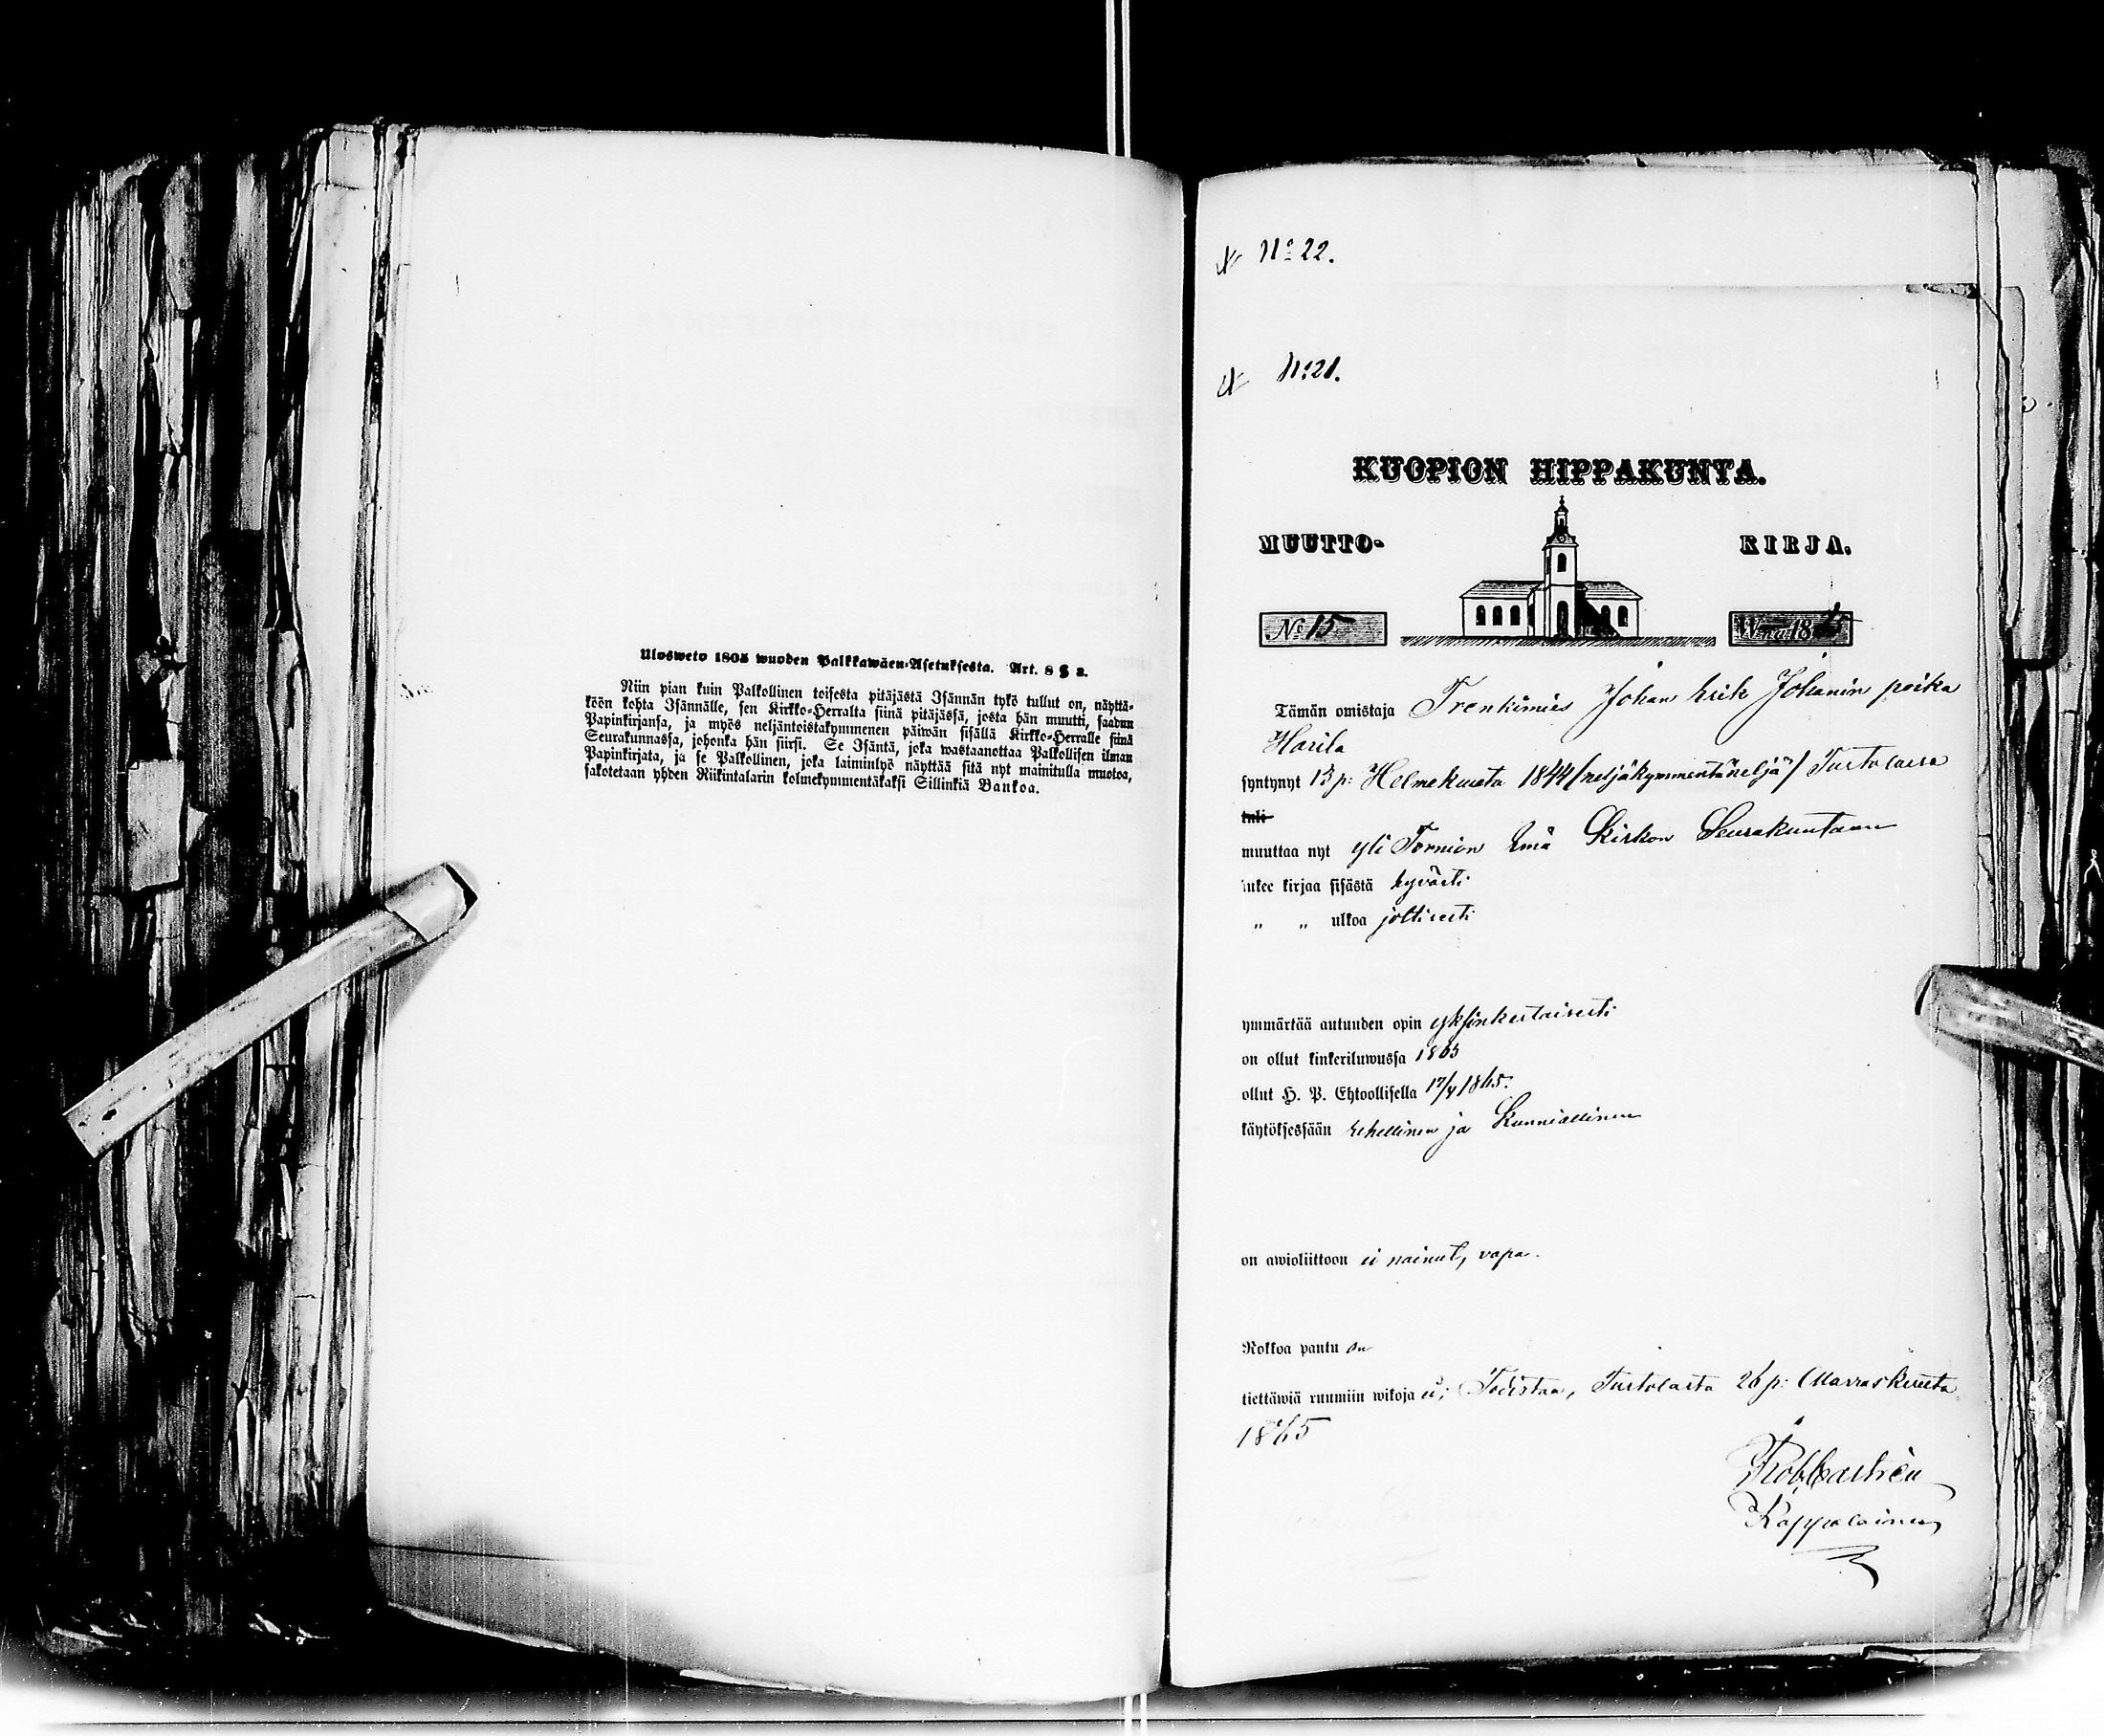 Ulosweto 1805 wuoden Palkkawäen-Asetuksesta. Art. 8 § 2.
Niin pian kuin Palkollinen toisesta pitäjästä Isännän tykö tullut on, näyttä-
köön kohta Isännälle, sen Kirkko-Herralta siinä pitäjässä, josta hän muutti, saadun
Papinkirjansa, ja myös neljäntoistakymmenen päiwän sisällä Kirkko-Herralle siinä
Seurakunnassa, johonka hän siirsi. Se Isäntä, joka wastaanottaa Palkollisen ilman
Papinkirjata, ja se Palkollinen, joka laiminlyö näyttää sitä nyt mainitulla muotoa,
sakotetaan yhden Riikintalarin kolmekymmentäkaksi Sillinkiä Bankoa.
No 22.
No 21.
KUOPION HIPPAKUNTA.
MUUTTO- KIRJA.
No 15 W:na 1865
Tämän omistaja Trenkimies Johan Erik Johanin poika
Harila
syntynyt 13 p: Helmekuuta 1844 /neljäkymmentäneljä/ Turtolassa
tuli
muuttaa nyt yli Tornion Emä Kirkon Seurakuntaan
lukee kirjaa sisästä hyvästi
" " ulkoa joltisesti
ymmärtää autuuden opin yksinkertaisesti
on ollut kinkeriluwussa 1865
ollut H. P. Ehtoollisella 17/4 1865.
käytöksessään rehellinen ja Kunniallinen
on awioliittoon ei nainut, vapa.
Rokkoa pantu on
tiettäwiä ruumiin wikoja ei; Todistaa, Turtolasta 26 p: Marraskuuta
1865
Kappalainen